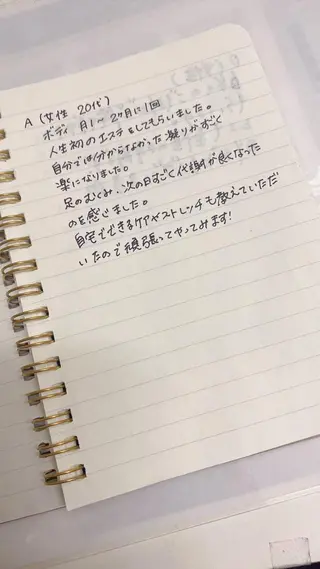 A (女性 20代)
ボディ 月1〜2ヶ月に1回
人生初のエステをしてもらいました。
自分では分からなかった凝りがすごく
楽になりました。
足のむくみ、次の日すごく代謝が良くなった
のを感じました。
自宅でできるケアやストレッチも教えていただ
いたので頑張ってやってみます!